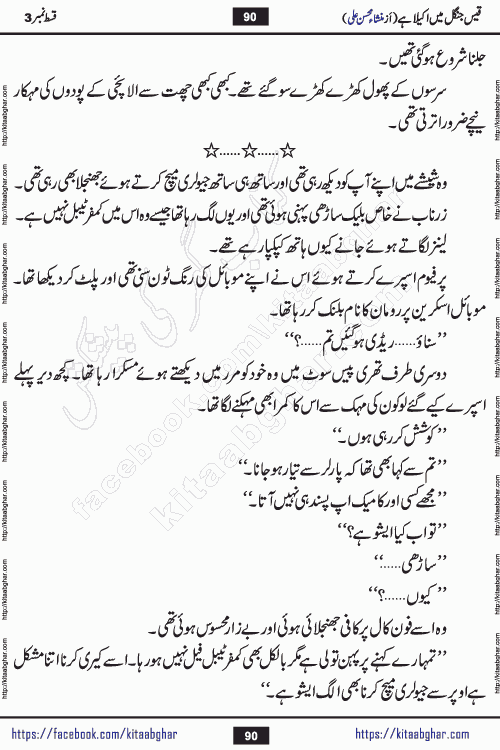 قیس جنگل میں اکیلا ہے (از منشاء محسن علی)
90
قسط نمبر 3
جلنا شروع ہوگئی تھیں۔
سرسوں کے پھول کھڑے کھڑے سو گئے تھے۔ کبھی کبھی چھت سے الائچی کے پودوں کی مہکار
نیچے ضرور اترتی تھی۔
☆......☆......☆
وہ شیشے میں اپنے آپ کو دیکھ رہی تھی اور ساتھ ہی ساتھ جیولری میچ کرتے ہوئے جھنجلا بھی رہی تھی۔
زرناب نے خاص بلیک ساڑھی پہنی ہوئی تھی اور یوں لگ رہا تھا جیسے وہ اس میں کمفرٹیبل نہیں ہے۔
لینز لگاتے ہوئے جانے کیوں ہاتھ کپکپا رہے تھے۔
پرفیوم اسپرے کرتے ہوئے اس نے اپنے موبائل کی رنگ ٹون سنی تھی اور پلٹ کر دیکھا تھا۔
موبائل اسکرین پر رومان کا نام بلنک کر رہا تھا۔
’’سناؤ...... ریڈی ہوگئیں تم......؟‘‘
دوسری طرف تھری پیس سوٹ میں وہ خود کو مرر میں دیکھتے ہوئے مسکرا رہا تھا۔ کچھ دیر پہلے
اسپرے کیے گئے لوکون کی مہک سے اس کا کمرا بھی مہکنے لگا تھا۔
’’کوشش کر رہی ہوں۔‘‘
’’تم سے کہا بھی تھا کہ پارلر سے تیار ہو جانا۔‘‘
’’مجھے کسی اور کا میک اپ پسند ہی نہیں آتا۔‘‘
’’تو اب کیا ایشو ہے؟‘‘
’’ساڑھی......‘‘
’’کیوں......؟‘‘
وہ اسے فون کال پر کافی جھنجلائی ہوئی اور بے زار محسوس ہوئی تھی۔
’’تمہارے کہنے پر پہن تو لی ہے مگر بالکل بھی کمفرٹیبل فیل نہیں ہو رہا۔ اسے کیری کرنا اتنا مشکل
ہے اوپر سے جیولری میچ کرنا بھی الگ ایشو ہے۔‘‘
http://kitaabghar.com
کتاب گھر کی پیشکش
facebook.com/kitaabghar
kitaabghar.com
https://facebook.com/kitaabghar
90
https://kitaabghar.com